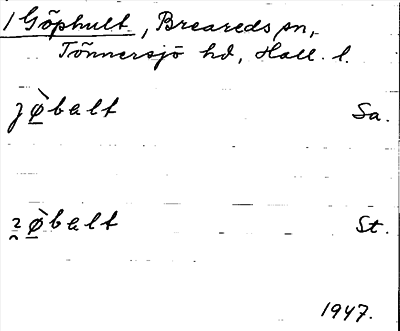 1 Göphult, Breareds sn,
Tönnersjö hd, Hall. l.
ȷø̠̀balt Sa.
ɀø̠̀balt St.
1947.